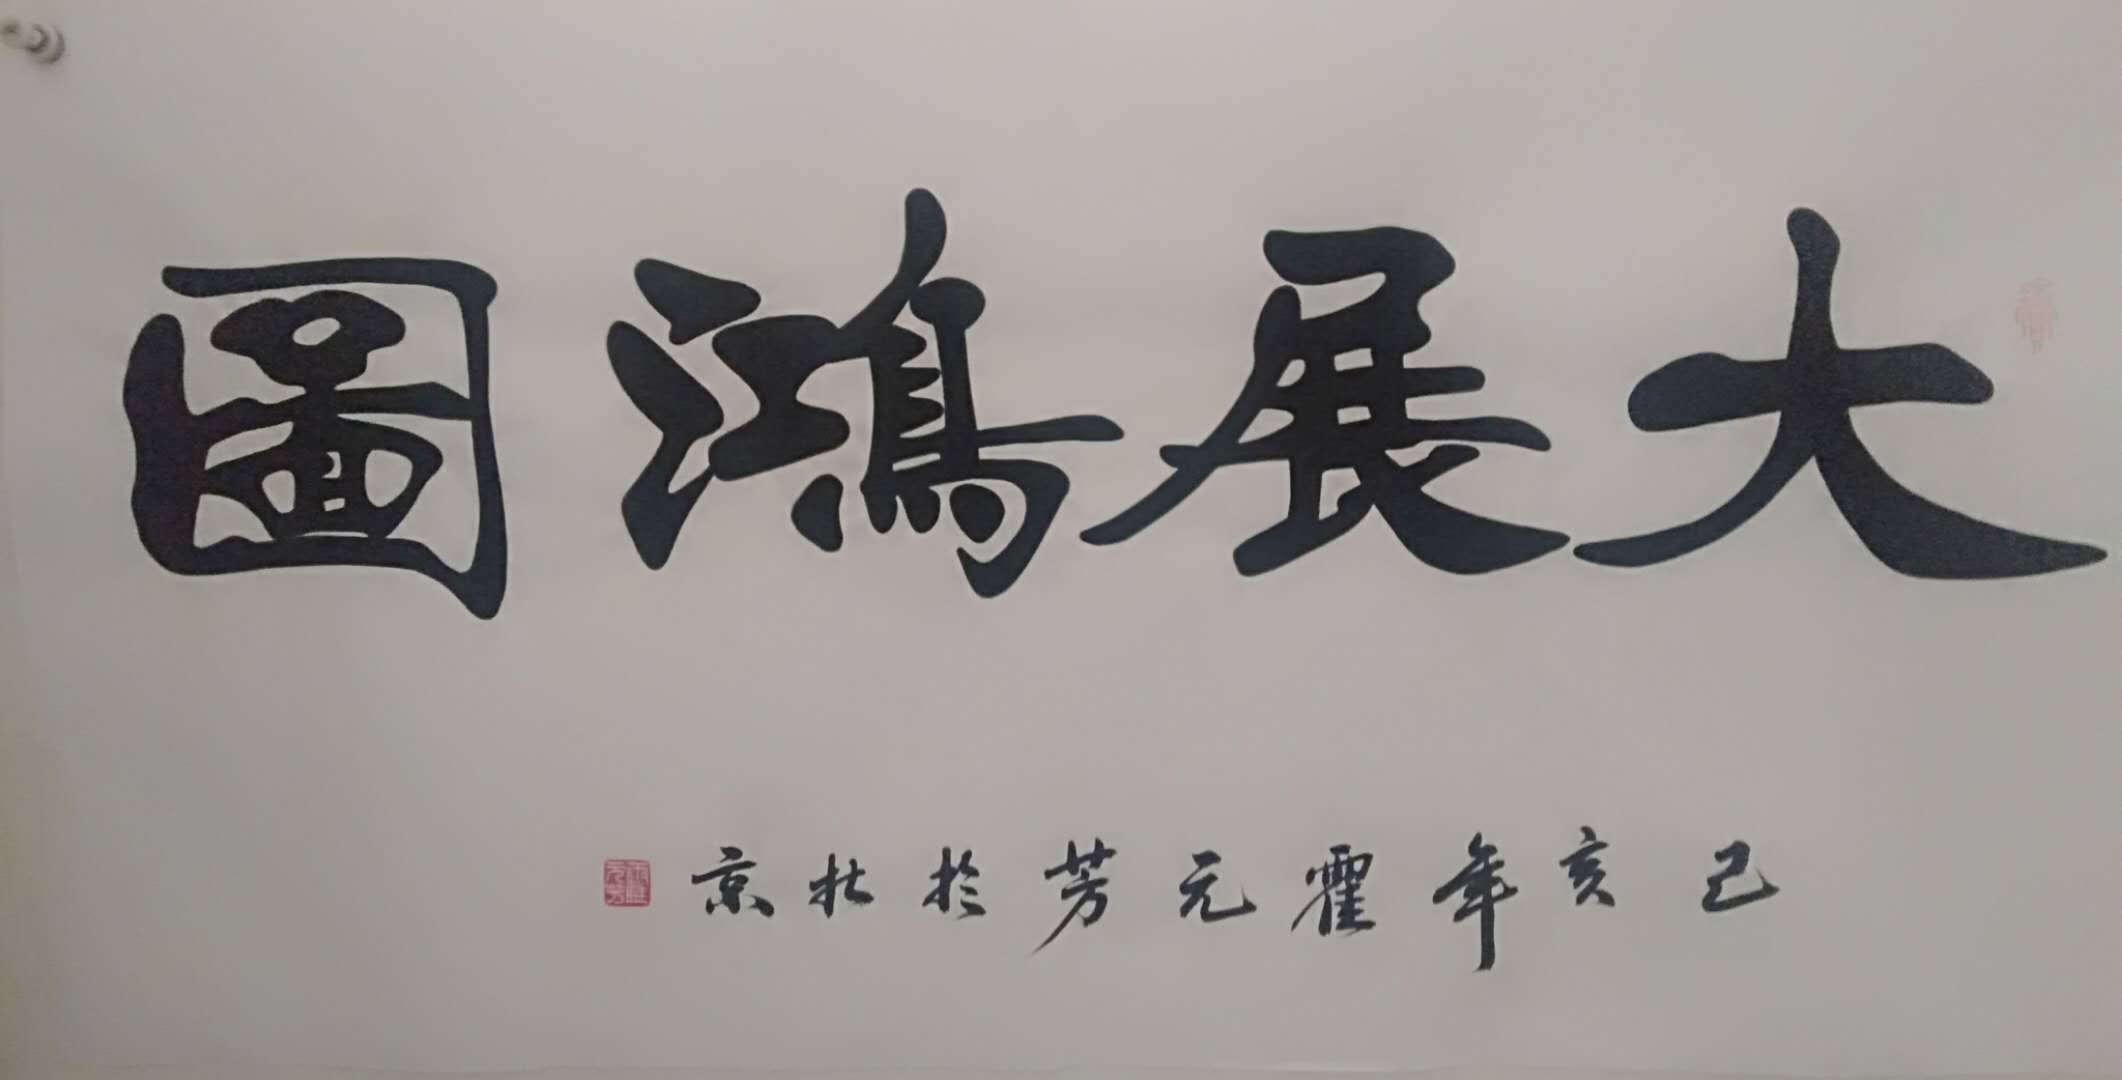 大展鴻圖
己亥年霍元芳於北京